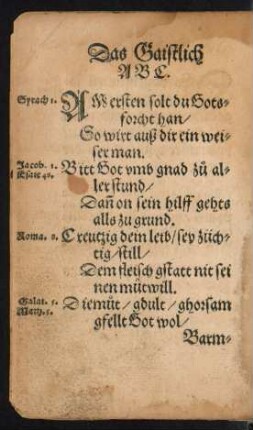 Das Gaistlich
A B C.
Syrach 1. AM ersten solt du Gots-
forcht han/
So wirt auß dir ein wei-
ser man.
Jacob. 1. Bitt Got vmb gnad zů al-
ler stund/
Dañ on sein hilff gehts
alls zu grund.
Roma. 8. Creutzig dem leib/ sey züch-
tig/ still/
Dem fleisch gstatt nit sei
nen můtwill.
Galat. 5. Diemüt/ gdult/ ghorsam
Matth. 5. gfellt Got wol/
Barm-